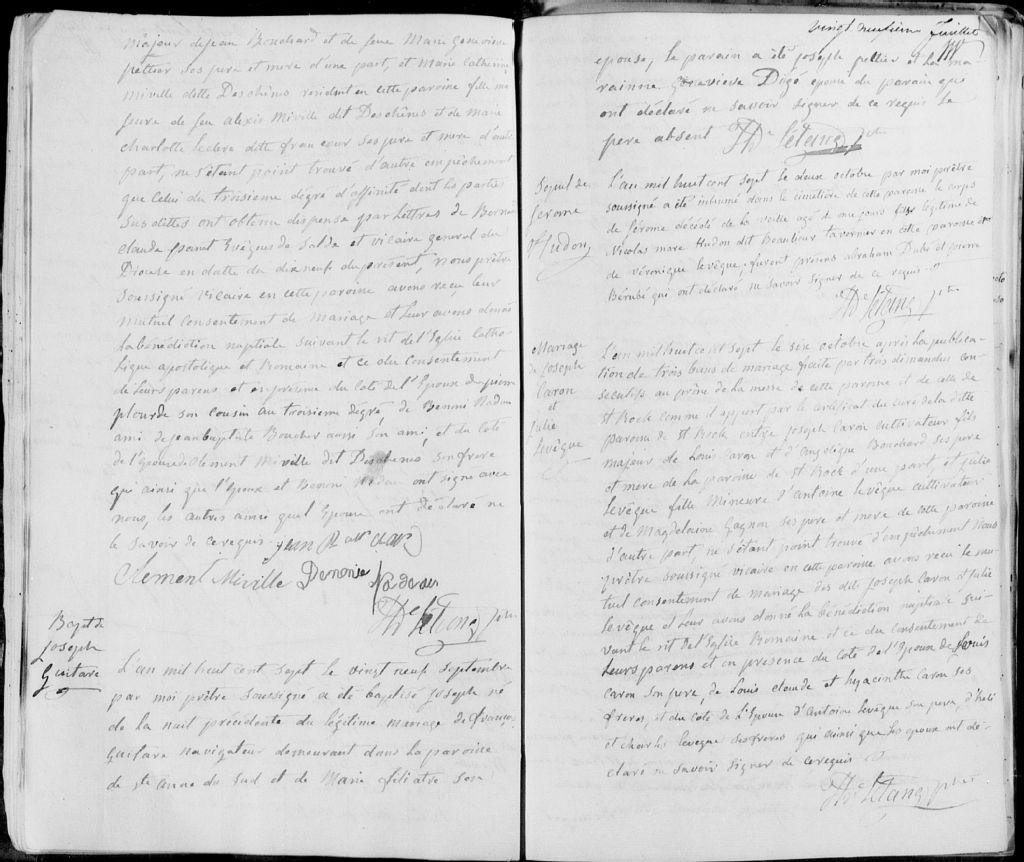 majeur de jean Bouchard et de feue Marie genevieve
pettier ses pere et mere d'une part, et Marie Catherine
Miville ditte Deschênes residente en cette paroisse fille ma
jeure de feu alexis Miville dit Deschênes et de marie
charlotte leclerc ditte francoeur ses pere et mere d'autre
part, ne s'étant point trouvé d'autre empêchement
que celui du troisieme dégré d'affinité dont les parties
sus dittes ont obtenu dispense par Lettres de Bernard
claude panet Evêque de Salde et vicaire general du
Diocese en datte du dixneuf du présent, Nous prêtre
soussigné vicaire en cette paroisse avons reçu leur
mutuel consentement de mariage et Leur avons donné
la bénédiction nuptiale suivant le rit de l'Eglise Catho-
lique apostolique et Romaine et ce du consentement
de Leurs parens et en présence du coté de l'Epoux de pierre
plourde son cousin au troisieme dégré, de Benoni Nadeau
ami de jean baptiste Boucher aussi son ami, et du coté
de l'Epouse de Clement Miville dit Deschenes son frere
qui ainsi que l'Epoux et Benoni Nadau ont signé avec
nous, les autres ainsi que l'Epouse ont déclaré ne
le savoir de ce requis. jean Bat
Clement Miville Denonie Nadeau
Ths Létang ptre
Bapt de
Joseph
Guitare
L'an mil huit cent sept le vingt neuf septembre
par moi prêtre soussigné a été baptisé joseph né
de la nuit précédente du légitime mariage de françois
Guitare navigateur demeurant dans la paroisse
de ste anne du sud et de Marie pelletier son
vingt neuvieme feuillet
epouse, le parain a été joseph pettier et la ma
rainne Genevieve Dagé epouse du parain qui
ont déclaré ne savoir signer de ce requis le
pere absent Ths Létang ptre
Sepul de
Jerome
Hudon
L'an mil huit cent sept le deux octobre par moi prêtre
soussigné a été inhumé dans le cimetière de cette paroisse le corps
de Jérome décédé de la veille agé de onze jours fils légitime de
Nicolas marc Hudon dit Beaulieu tavernier en cette paroisse et
de véronique levêque, furent présens abraham Dubé et pierre
Bérubé qui ont déclaré ne savoir signer de ce requis.
Ths Létang ptre
Mariage
de Joseph
Caron
et
Julie
Levêque
L'an mil huit cent sept le six octobre après la publica-
tion de trois bans de mariage faite par trois dimanches con-
secutifs au prône de la messe de cette paroisse et de celle de
st Rock comme il appert par le certificat du curé de la ditte
paroisse de st Rock entre joseph Caron cultivateur fils
majeur de Louis Caron et d'angelique Bouchard ses pere
et mere de la paroisse de st Rock d'une part, et julie
Levêque fille Mineure d'antoine levêque cultivateur
et de Magdelaine Gagnon ses pere et mere de cette paroisse
d'autre part, ne s'étant point trouvé d'empêchement Nous
prêtre soussigné vicaire en cette paroisse avons reçu le mu-
tuel consentement de mariage des dits joseph Caron et julie
Levêque et Leur avons donné la bénédiction nuptiale sui-
vant le rit de l'Eglise Romaine et ce du consentement de
Leurs parens et en présence du coté de l'Epoux de Louis
Caron son pere, de Louis claude et hyacinthe Caron ses
freres, et du coté de L'Epouse d'Antoine levêque son pere, d'
et charles levêque ses freres qui ainsi que les epoux ont dé-
claré ne savoir signer de ce requis
Ths Létang ptre